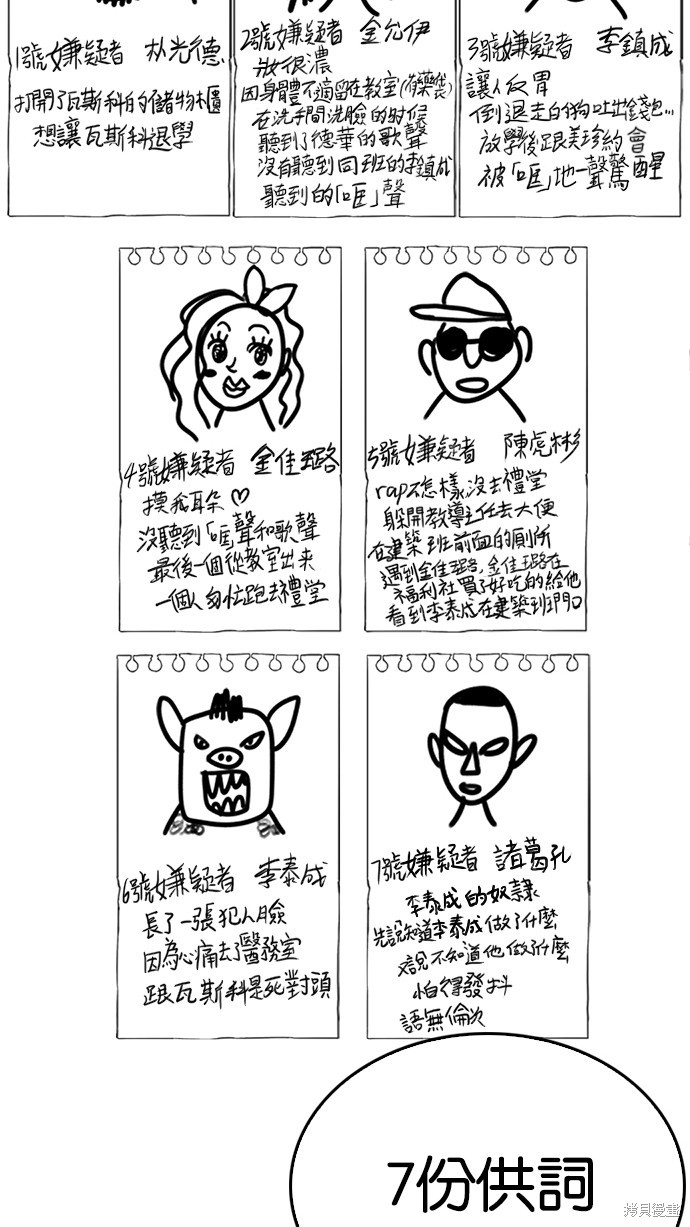 1號嫌疑者 朴光德
打開了瓦斯科的儲物櫃
想讓瓦斯科退學
2號嫌疑者 金允伊
妝很濃
因身體不適留在教室(有藥袋)
在洗手間洗臉的時候
聽到了德華的歌聲
沒有聽到同班的李鎮成
聽到的「哐」聲
3號嫌疑者 李鎮成
讓人反胃
倒退走的狗吐出錢包...
放學後跟美珍約會
被「哐」地一聲驚醒
4號嫌疑者 金佳璐
摸我耳朵♡
沒聽到「哐」聲和歌聲
最後一個從教室出來
一個人匆忙跑去禮堂
5號嫌疑者 陳虎彬
rap不怎樣沒去禮堂
躲開教導主任去大便
在建築班前面的廁所
遇到金佳璐,金佳璐在
福利社買了好吃的給他
看到李泰成在建築班門口
6號嫌疑者 李泰成
長了一張犯人臉
因為心痛去了醫務室
跟瓦斯科是死對頭
7號嫌疑者 諸葛孔
李泰成的奴隸
先說知道李泰成做了什麼
又說不知道他做了什麼
怕得發抖
語無倫次
7份供詞
拷貝漫畫